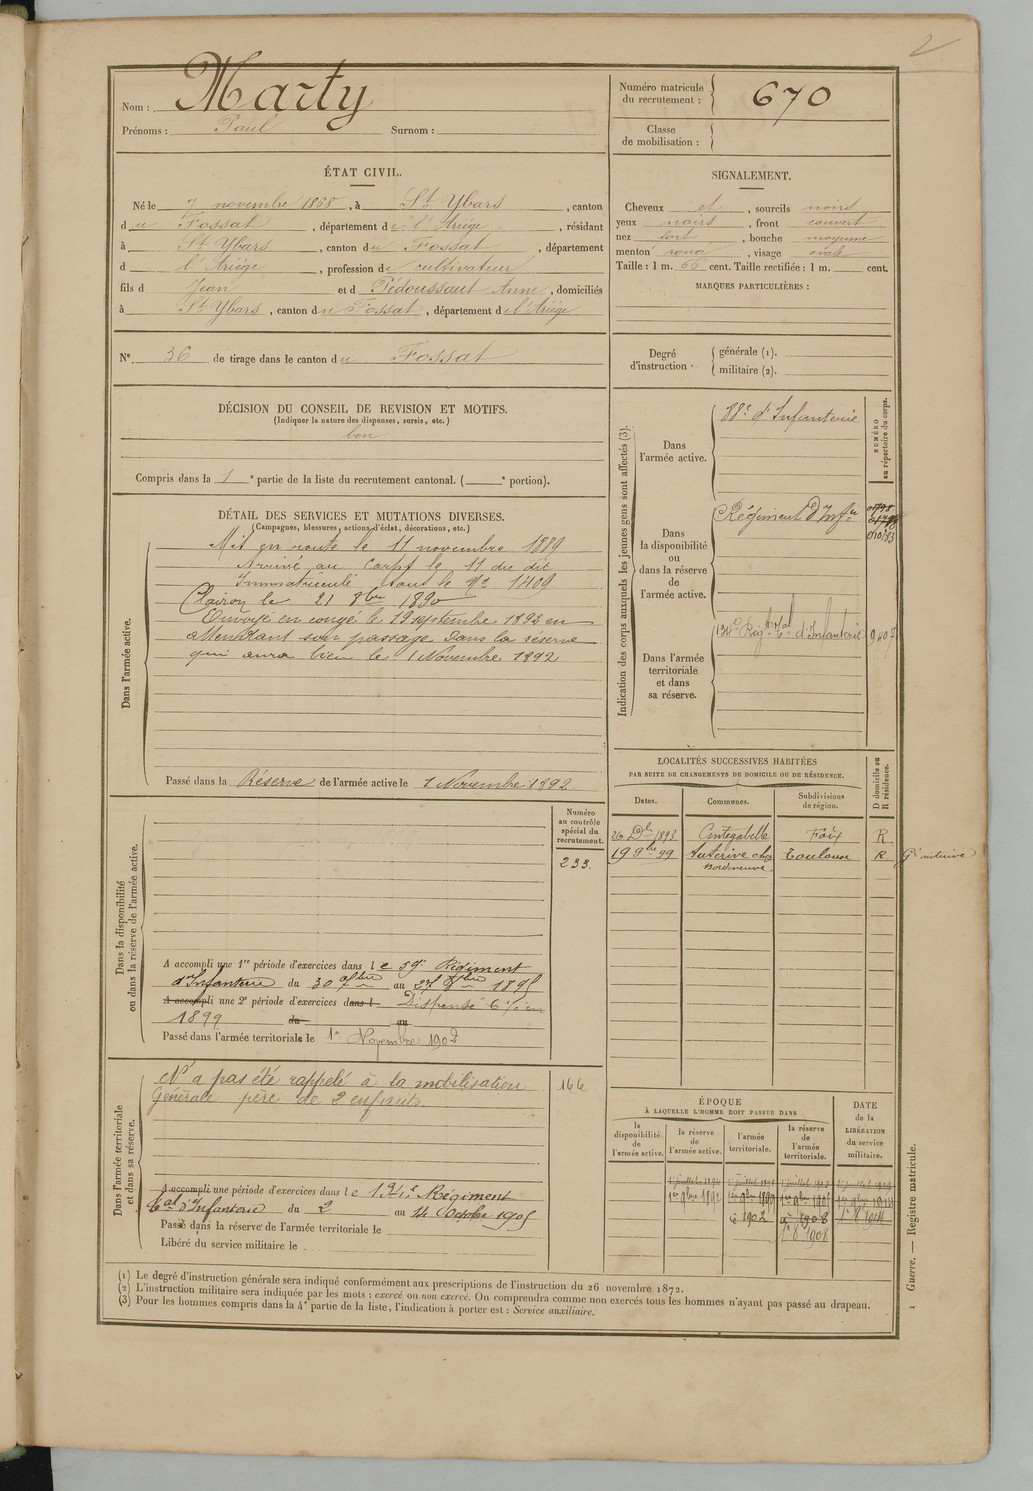 2
Nom : Marty
Prénoms : Paul Surnom :
Numéro matricule du recrutement : 670
Classe de mobilisation :
ÉTAT CIVIL.
Né le 7 novembre 1868, à St Ybars, canton
du Fossat, département de l'Ariège, résidant
à St Ybars, canton du Fossat, département
d l'Ariège, profession de cultivateur
fils d Jean et d Pédoussaut Anne, domiciliés
à St Ybars, canton du Fossat, département de l'Ariège
N° 36 de tirage dans le canton du Fossat
DÉCISION DU CONSEIL DE REVISION ET MOTIFS.
(Indiquer la nature des dispenses, sursis, etc.)
bon
Compris dans la 1e partie de la liste du recrutement cantonal. ( e portion).
DÉTAIL DES SERVICES ET MUTATIONS DIVERSES.
(Campagnes, blessures, actions d'éclat, décorations, etc.)
Dans l'armée active.
Mis en route le 11 novembre 1889
Arrivé au Corps le 11 du dit
Immatriculé sous le No 1409
Clairon le 21 8bre 1890
Envoyé en congé le 19 septembre 1892 en
attendant son passage dans la réserve
qui aura lieu le 1 Novembre 1892
Passé dans la Réserve de l'armée active le 1 Novembre 1892
Dans la disponibilité
ou dans la réserve de l'armée active.
Numéro
au contrôle
spécial du
recrutement.
233.
A accompli une 1re période d'exercices dans le 59e Régiment
d'Infanterie du 30 au 1895
A accompli une 2e période d'exercices dans l Dispensé 6 % en
1899 du au
Passé dans l'armée territoriale le 1er Novembre 1902
Dans l'armée territoriale
et dans sa réserve.
N'a pas été rappelé à la mobilisation
Générale père de 2 enfants.
166
A accompli une période d'exercices dans le 134e Régiment
tal d'Infanterie du 2 au 14 Octobre 1905
Passé dans la réserve de l'armée territoriale le
Libéré du service militaire le
SIGNALEMENT.
Cheveux et, sourcils noirs
yeux noirs, front couvert
nez fort, bouche moyenne
menton rond, visage ovale
Taille : 1 m. 66 cent. Taille rectifiée : 1 m. cent.
MARQUES PARTICULIÈRES :
Degré d'instruction
générale (1).
militaire (2).
Indication des corps auxquels les jeunes gens sont affectés (3).
NUMÉRO
au répertoire du corps.
Dans
l'armée active.
88e d'Infanterie
Dans
la disponibilité
ou
dans la réserve
de
l'armée active.
Régiment d'Infie
Dans l'armée
territoriale
et dans
sa réserve.
134e Régt tal d'Infanterie
LOCALITÉS SUCCESSIVES HABITÉES
PAR SUITE DE CHANGEMENTS DE DOMICILE OU DE RÉSIDENCE.
D domicile ou
R résidence.
Dates. Communes. Subdivisions de région.
26 1893 Cintegabelle Foix R
19 9bre 99 Auterive chez Bordeneuve Toulouse R
Gie auterive
ÉPOQUE
À LAQUELLE L'HOMME DOIT PASSER DANS
la disponibilité de l'armée active.
la réserve de l'armée active.
l'armée territoriale.
la réserve de l'armée territoriale.
DATE
de la
LIBÉRATION
du service
militaire.
1er 9bre 1892
1902 1908
(1) Le degré d'instruction générale sera indiqué conformément aux prescriptions de l'instruction du 26 novembre 1872.
(2) L'instruction militaire sera indiquée par les mots : exercé ou non exercé. On comprendra comme non exercés tous les hommes n'ayant pas passé au drapeau.
(3) Pour les hommes compris dans la 4e partie de la liste, l'indication à porter est : Service auxiliaire.
1 Guerre. — Registre matricule.